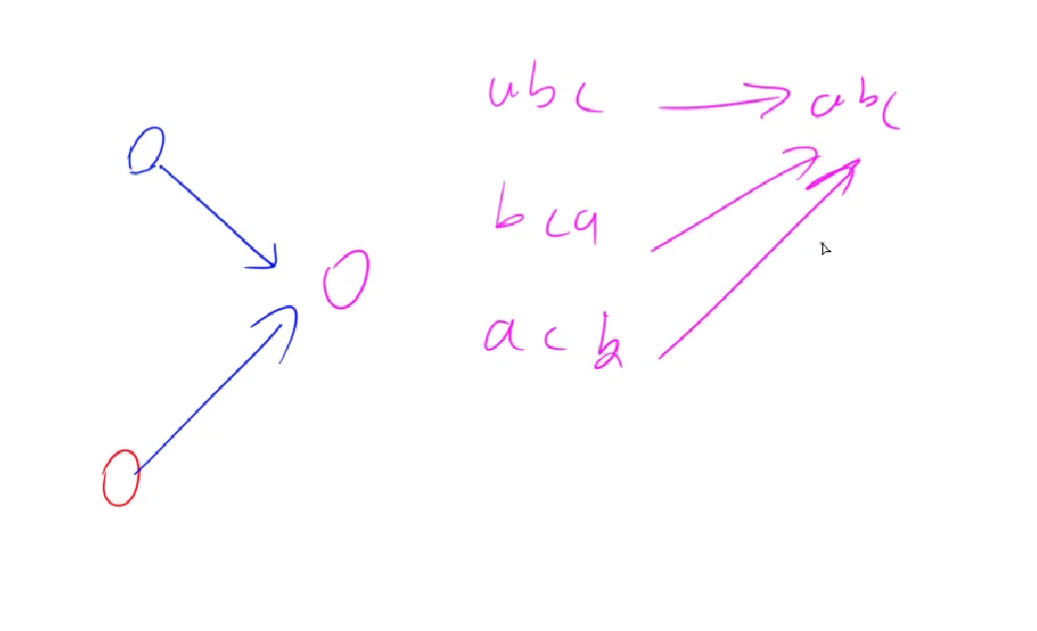 abc → abc
bca
acb